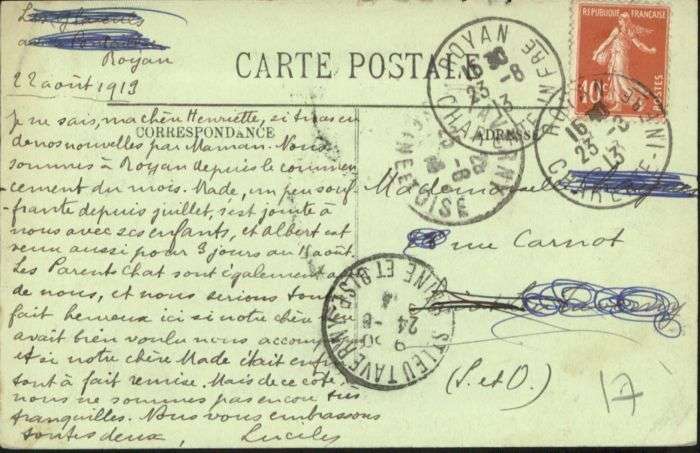 Royan
22 août 1913
CARTE POSTALE
CORRESPONDANCE
ADRESSE
RÉPUBLIQUE FRANÇAISE
10c
ROYAN
16
23-8
13
CHARENTE-INF
ROYAN
16
23-8
13
CHARENTE-INF
SEINE ET OISE
Je ne sais, ma chère Henriette, si tu as eu
de nos nouvelles par Maman. Nous
sommes à Royan depuis le commen
cement du mois. Made, un peu souf
frante depuis juillet, s'est jointe à
nous avec ses enfants, et Albert est
venu aussi pour 3 jours au 15 août.
Les Parents Chat sont également
de nous, et nous serions tout
fait heureux ici si notre chère
avait bien voulu nous accompag
et si notre chère Made était enfin
tout à fait remise. Mais de ce côté,
nous ne sommes pas encore très
tranquilles. Nous vous embrassons
toutes deux, Lucile
Mademoiselle
rue Carnot
(S. et O.)
ST LEU TAVERNY
SEINE ET OISE
24-8
17